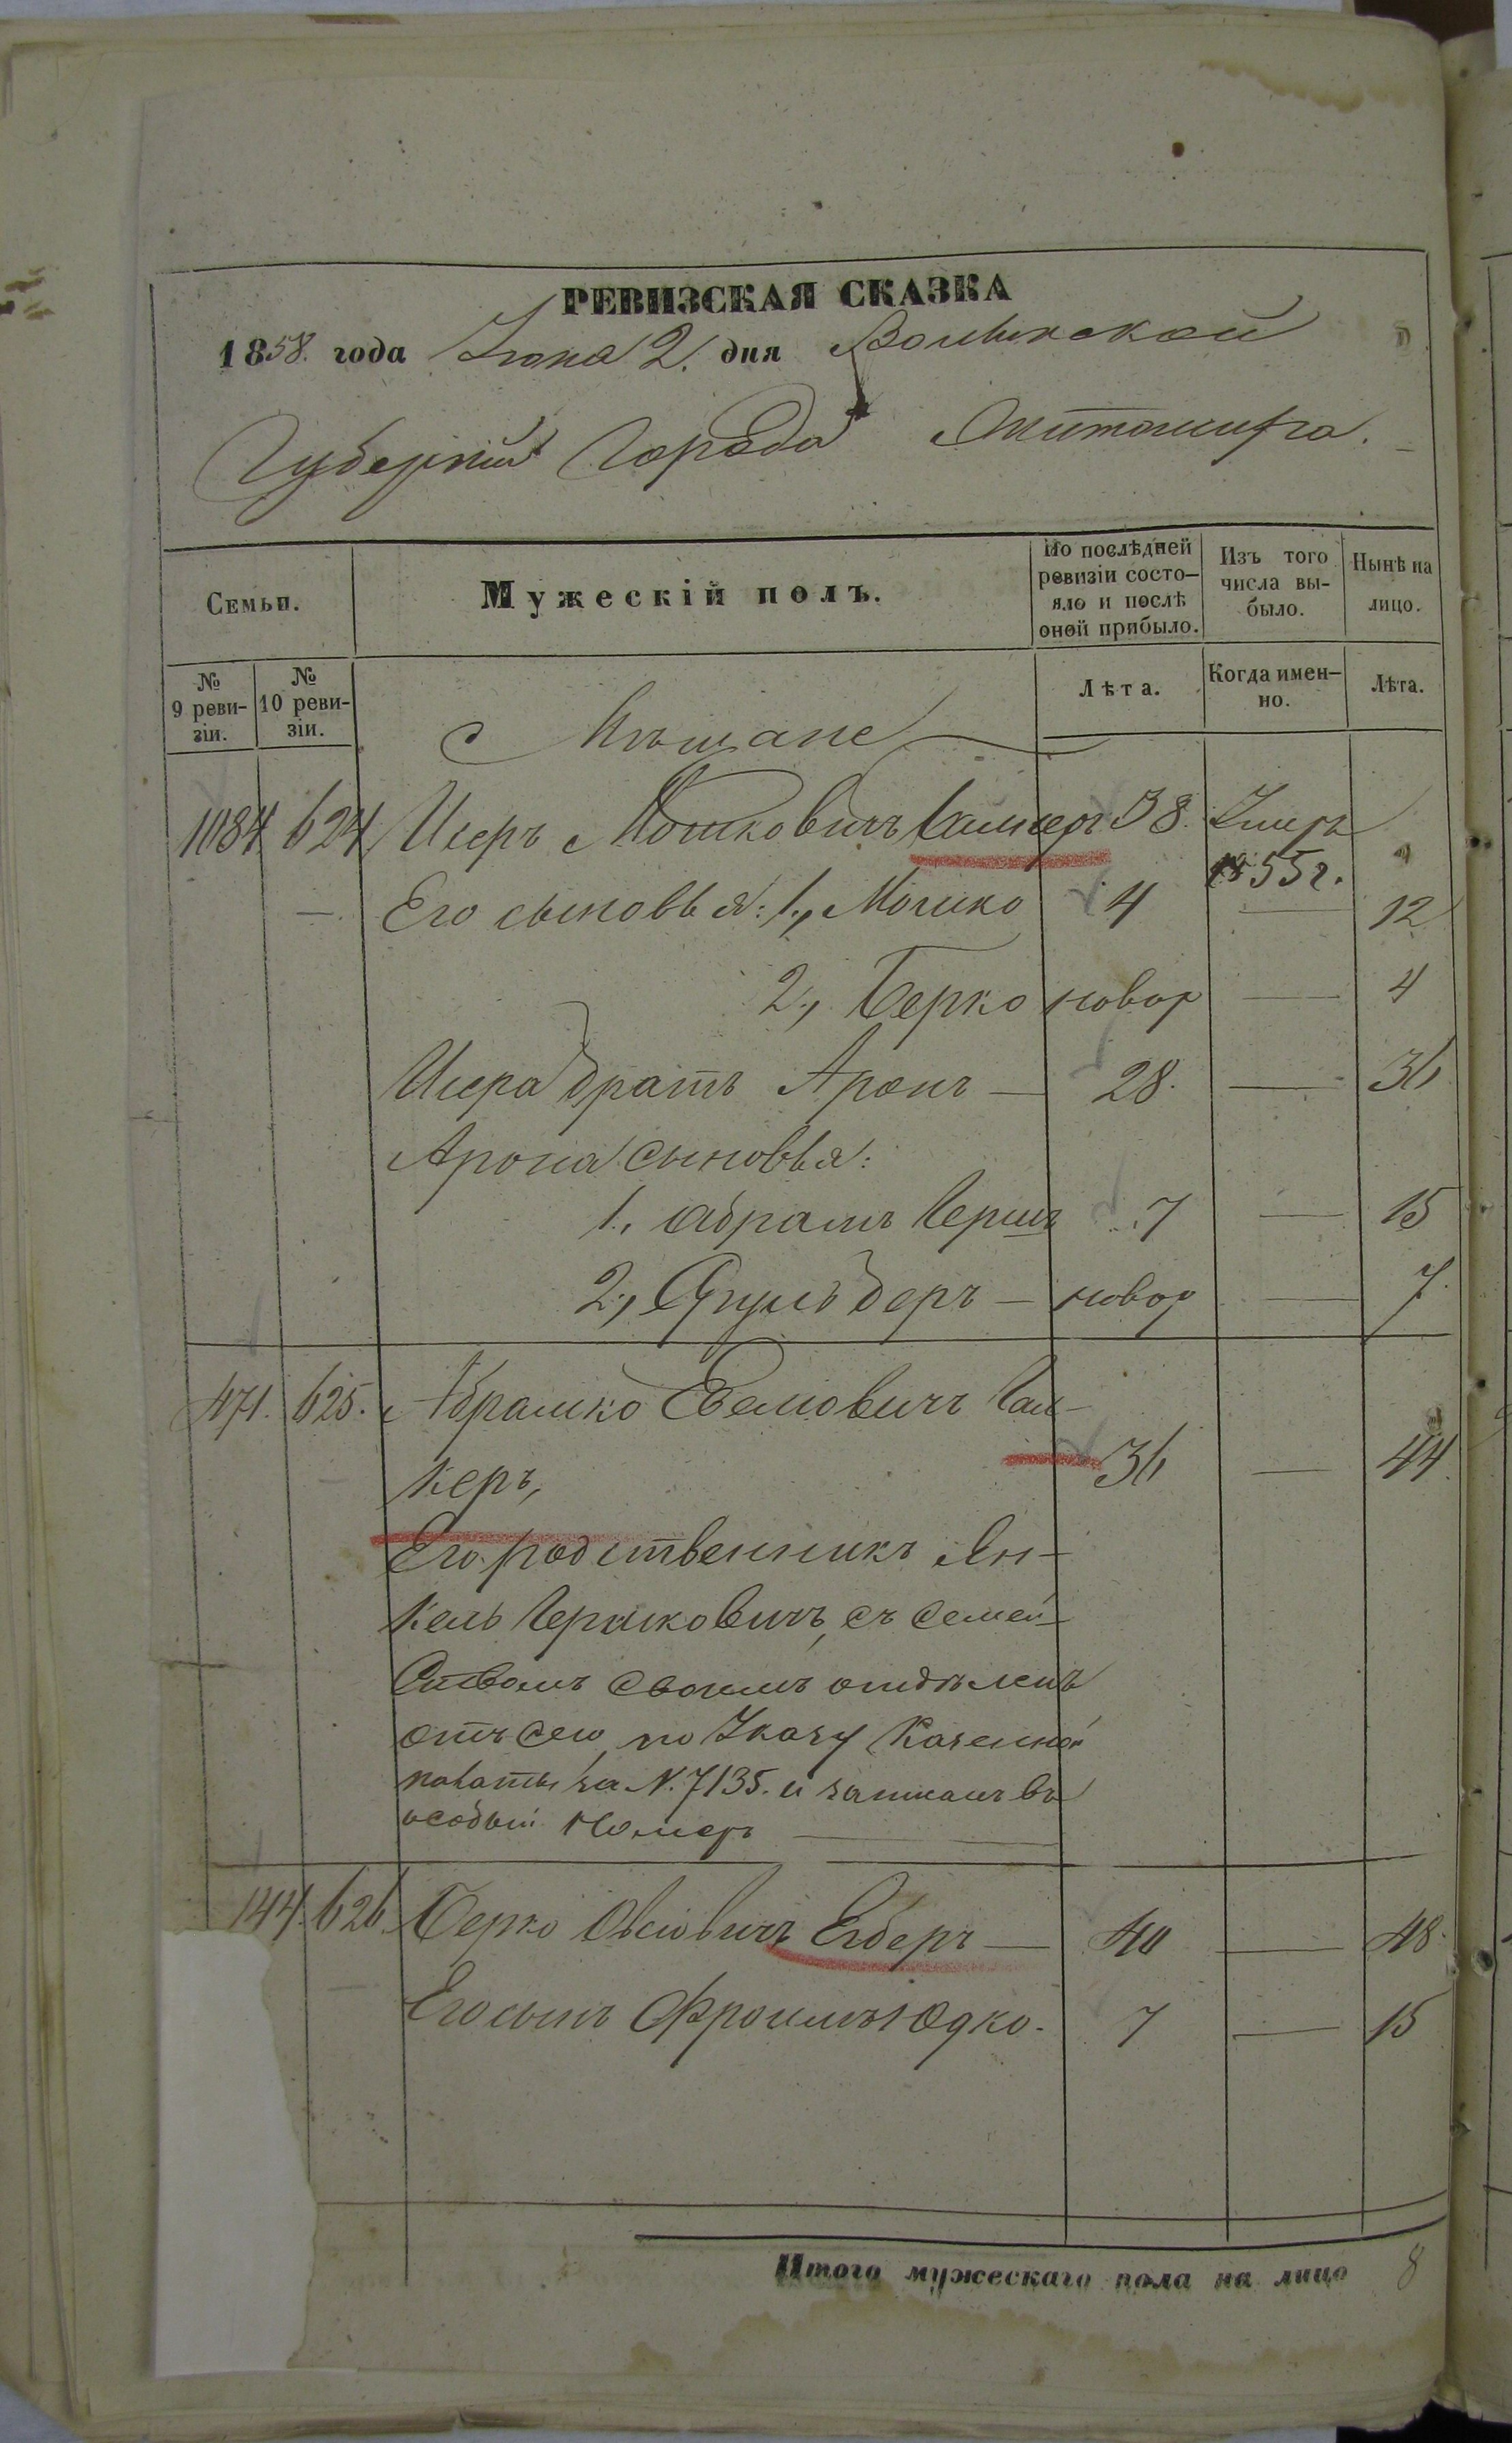 РЕВИЗСКАЯ СКАЗКА
1858. года Іюня 2. дня Волынской
Губерніи Города Житомира.
Семьи.
Мужескій полъ.
По послѣдней ревизіи состо-яло и послѣ оной прибыло.
Изъ того числа вы-было.
Нынѣ на лицо.
№ 9 реви-зіи.
№ 10 реви-зіи.
Лѣта.
Когда имен-но.
Лѣта.
Мѣщане
1084 624 Исеръ Мошковичъ 38. Умеръ
1855 г.
Его сыновья: 1., Мошко 4 — 12
2., Берко новор — 4
Исера братъ Аронъ — 28. — 36
Арона сыновья:
1., Абрамъ Гершъ 7 — 15
2., беръ — новор — 7.
471. 625. Абрамко Гал-
керъ, 36 — 44
Его родственникъ Ян-
кель Гершковичъ, съ семей-
ствомъ своимъ отдѣленъ
отъ сего, по Указу Казенной
палаты за N. 7135. и записанъ въ
особый номеръ —
144. 626. Берко Овсіовичъ — 40 — 48.
Его сынъ Фроимъ Юдко. 7 — 15
Итого мужескаго пола на лицо 8